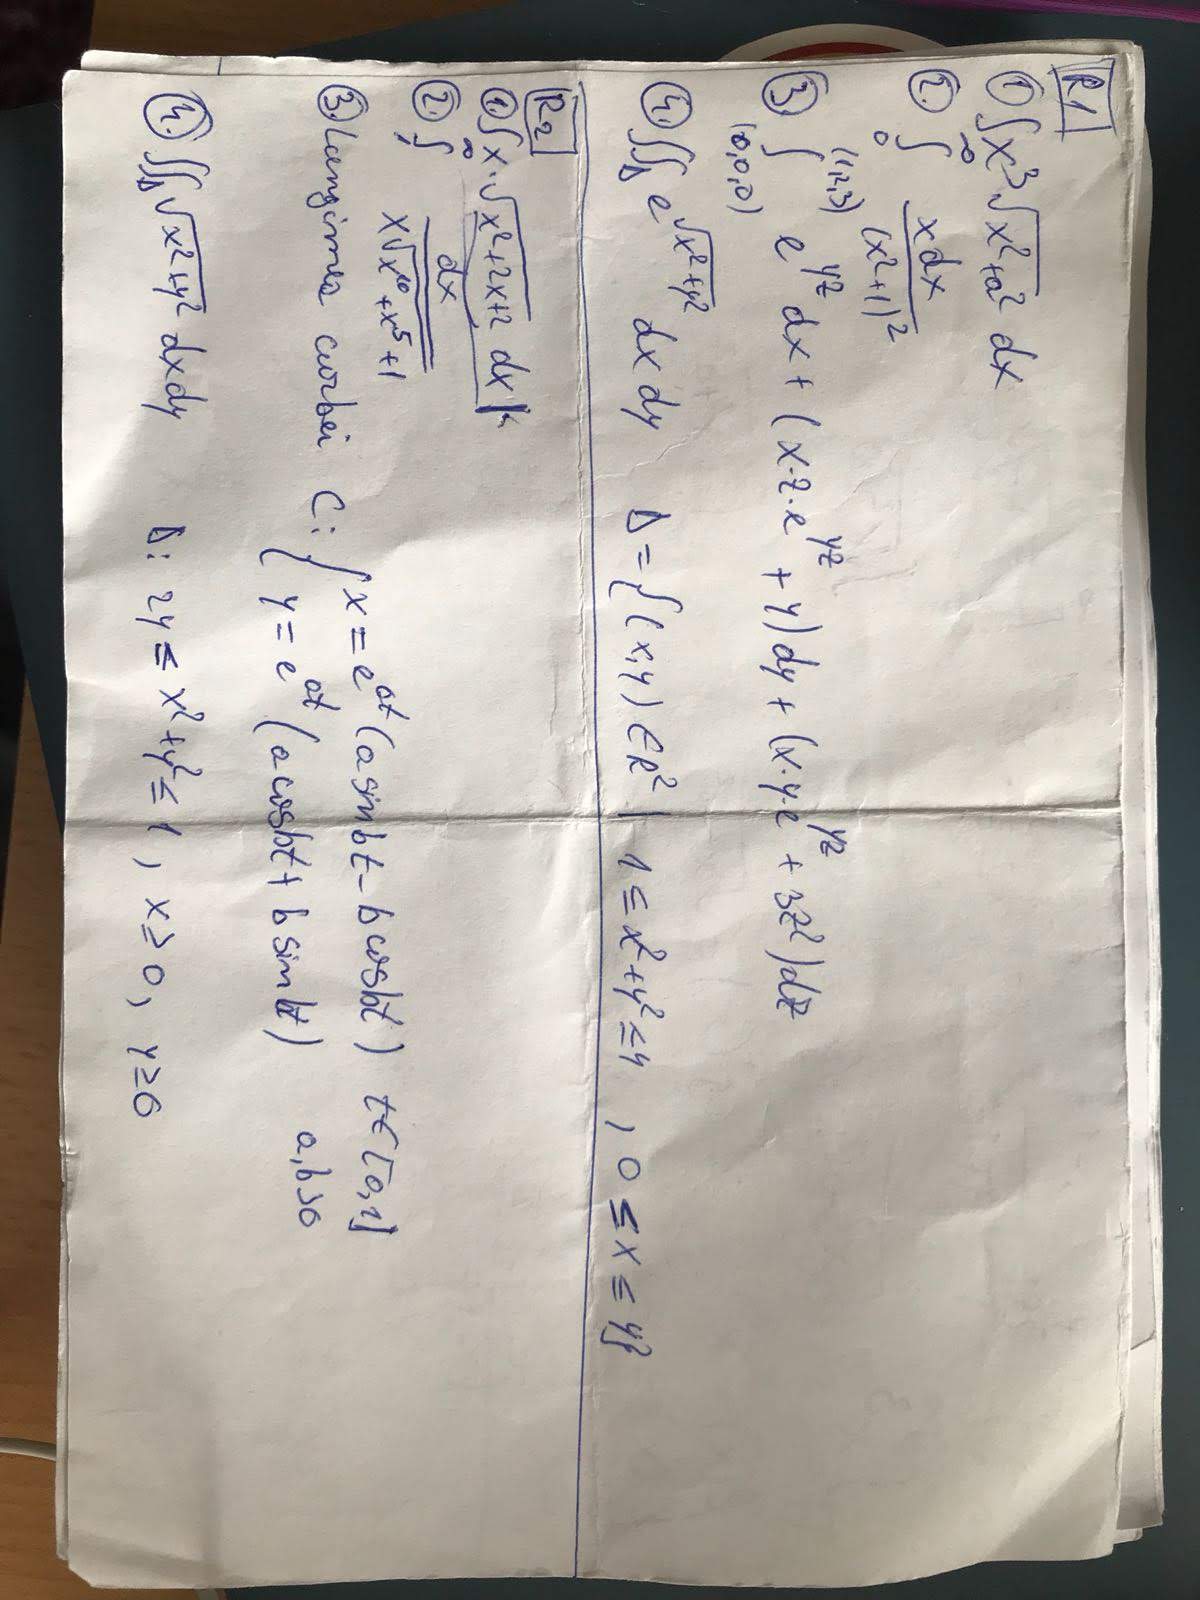 R1
① ∫x³√(x²+a²) dx
②. ∫₀^∞ x dx / (x²+1)²
③. ∫_(0,0,0)^(1,2,3) e^(yz) dx + (x·z·e^(yz) + y) dy + (x·y·e^(yz) + 3z²) dz
④. ∬_D e^√(x²+y²) dx dy D = {(x,y) ∈ R² | 1 ≤ x²+y² ≤ 4 , 0 ≤ x ≤ y}
R2
①. ∫x·√(x²+2x+2) dx
②. ∫₁^∞ dx / x√(x¹⁰+x⁵+1)
③. Lungimea curbei C: { x = e^(at) (a sin bt - b cos bt) t ∈ [0,1]
y = e^(at) (a cos bt + b sin bt) a,b>0
④. ∬_D √(x²+y²) dx dy D: 2y ≤ x²+y² ≤ 1, x ≥ 0, y ≥ 0